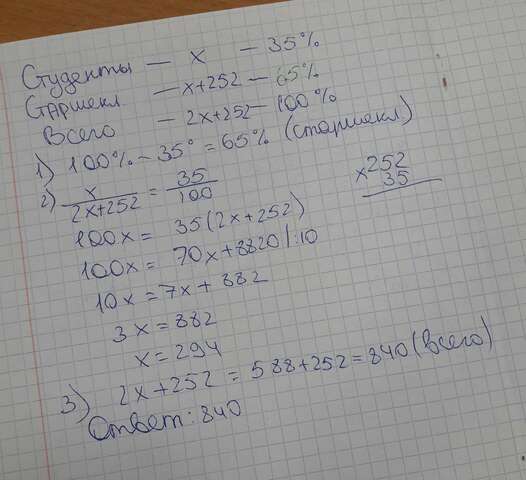 Студенты — x — 35%
Старшекл. — x+252 — 65%
Всего — 2x+252 — 100%
1) 100% - 35° = 65% (старшекл)
2) x/2x+252 = 35/100
x 252
35
100x = 35(2x+252)
100x = 70x+8820 |:10
10x = 7x + 882
3x = 882
x = 294
3) 2x+252 = 588+252 = 840 (всего)
Ответ: 840